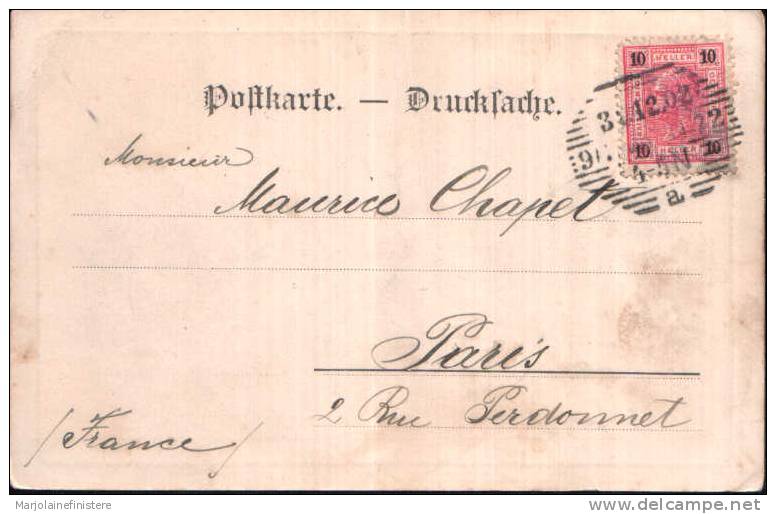 10 HELLER 10
Postkarte. — Drucksache.
12.02
10 HELLER 10
a
Monsieur
Maurice Chapet
Paris
2 Rue Perdonnet
/France/
Marjolainefinistere
delcampe.net